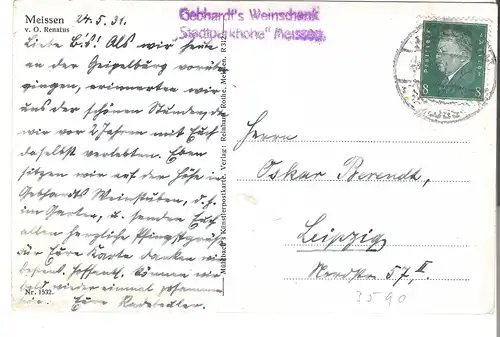 Meissen 24.5.31.
v. O. Renatus
Liebe B.S! Als wir heute
an der Geipelburg vorüber
gingen, erinnerten wir
uns der schönen Stunden, die
wir vor 2 Jahren mit Euch
daselbst verlebten. Eben
sitzen wir auf der Höhe in
Gebhardts Weinstuben, d.h.
im Garten, u. senden Euch
allen herzliche Pfingstgrüße
Für Eure Karte danken wir
bestens. Hoffentl. können wir
bald wieder einmal zusammen
Eure
Nr. 1532.
Gebhardt's Weinschank
"Stadtparkhöhe" Meissen
Künstlerpostkarte. Verlag: Reinhard Rothe, Meissen
DEUTSCHES REICH
8 8
Herrn
Oskar Berendt,
Leipzig
57, II.
3590